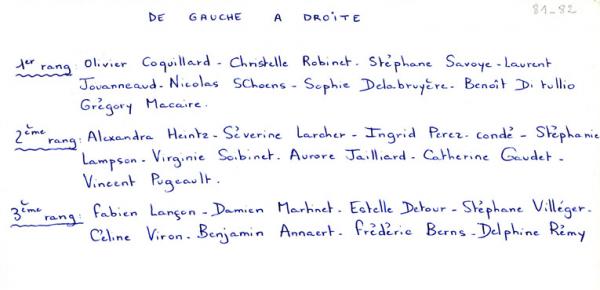 DE GAUCHE A DROITE
81-82
1er rang: Olivier Coquillard - Christelle Robinet - Stéphane Savoye - Laurent
Jouanneaud - Nicolas Schoens - Sophie Delabruyère - Benoît Di tullio
Grégory Macaire.
2ème rang: Alexandra Heintz - Séverine Larcher - Ingrid Perez-condé - Stéphanie
Lampson - Virginie Soibinet. Aurore Jailliard - Catherine Gaudet -
Vincent Pugeault.
3ème rang: Fabien Lançon - Damien Martinet. Estelle Detour - Stéphane Villéger.
Céline Viron - Benjamin Annaert - Frédéric Berns - Delphine Rémy